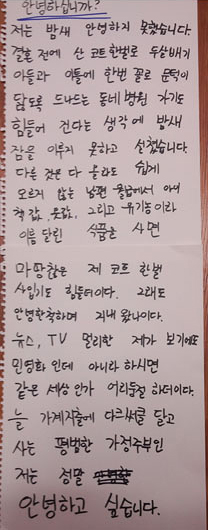 안녕하십니까?
저는 밤새 안녕하지 못했습니다.
결혼 전에 산 코트 한벌로 두살배기
아들과 이틀에 한번 꼴로 문턱이
닳도록 드나드는 동네병원 가기도
힘들어 진다는 생각에 밤새
잠을 이루지 못하고 설쳤습니다.
다른 것은 다 올라도 쉽게
오르지 않는 남편 월급에서 아이
책값, 옷값, 그리고 유기농이라
이름 달린 식품을 사면
마땅찮은 제 코트 한벌
사입기도 힘들더이다. 그래도
안녕한척하며 지내 왔나이다.
뉴스, TV 멀리한 제가 보기에도
민영화 인데 아니라 하시면
같은 세상인가 어리둥절 하더이다.
늘 가계지출에 다크써클 달고
사는 평범한 가정주부인
저는 정말
안녕하고 싶습니다.